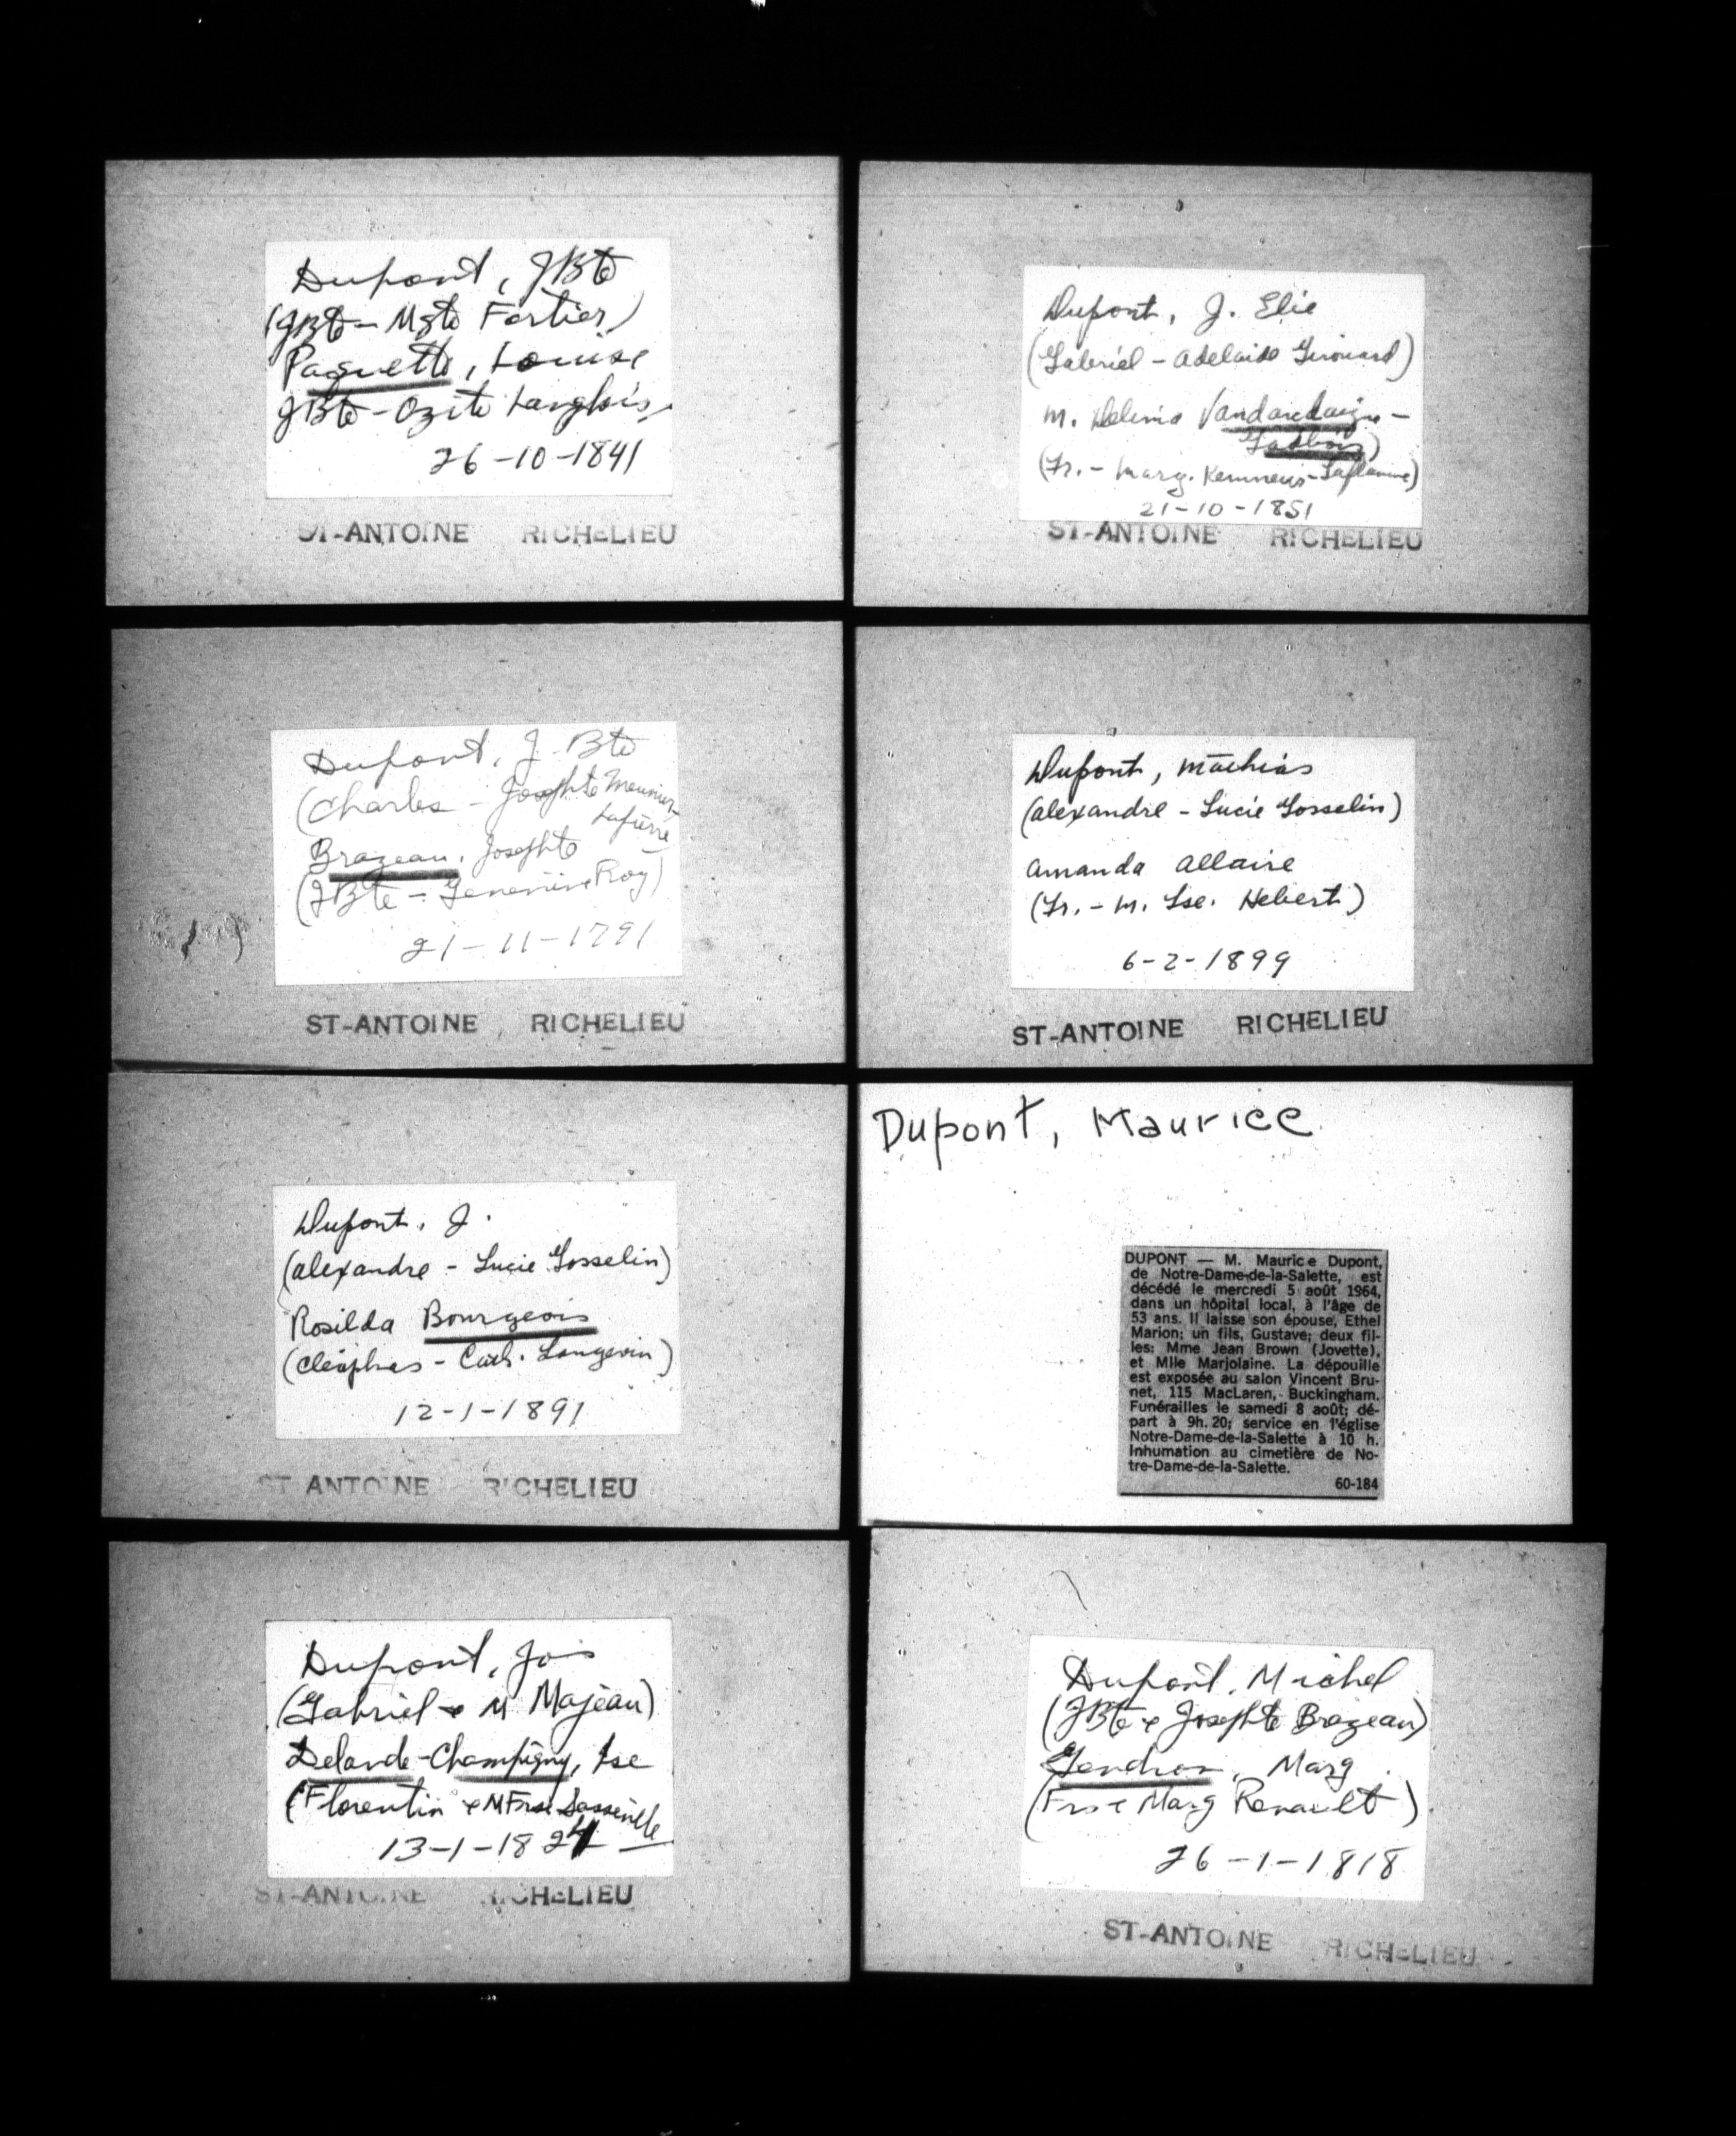 Dupont, JBte
(JBte - Mgte Fortier)
Paquette, Louise
JBte - Ozite Langlois
26-10-1841
ST-ANTOINE RICHELIEU
Dupont, J. Elie
(Gabriel - Adelaide Girouard)
M. Delima Vandandaigue-
Gadbois)
(Fr. - Marg. Kemneur-Laflamme)
21-10-1851
ST-ANTOINE RICHELIEU
Dupont, J. Bte
(Charles - Josephte Meunier-
Lapierre
Brazeau, Josephte
(JBte - Genevieve Roy)
21-11-1791
ST-ANTOINE RICHELIEU
Dupont, Mathias
(Alexandre - Lucie Gosselin)
Amanda Allaire
(Fr. - M. Lse. Hebert)
6-2-1899
ST-ANTOINE RICHELIEU
Dupont, J.
(Alexandre - Lucie Gosselin)
Rosilda Bourgeois
(Cléophas - Cath. Langevin)
12-1-1891
ST ANTOINE RICHELIEU
Dupont, Maurice
DUPONT — M. Maurice Dupont,
de Notre-Dame-de-la-Salette, est
décédé le mercredi 5 août 1964,
dans un hôpital local, à l'âge de
53 ans. Il laisse son épouse, Ethel
Marion; un fils, Gustave; deux fil-
les: Mme Jean Brown (Jovette),
et Mlle Marjolaine. La dépouille
est exposée au salon Vincent Bru-
net, 115 MacLaren, Buckingham.
Funérailles le samedi 8 août; dé-
part à 9h. 20; service en l'église
Notre-Dame-de-la-Salette à 10 h.
Inhumation au cimetière de No-
tre-Dame-de-la-Salette.
60-184
Dupont, Jos
(Gabriel & M Majeau)
Delarde-Champigny, Lse
(Florentin & M Frse Sasseville
13-1-1824
ST-ANTOINE RICHELIEU
Dupont, Michel
(JBte & Josephte Brazeau)
Gendron, Marg
(Frs & Marg Renault)
26-1-1818
ST-ANTOINE RICHELIEU